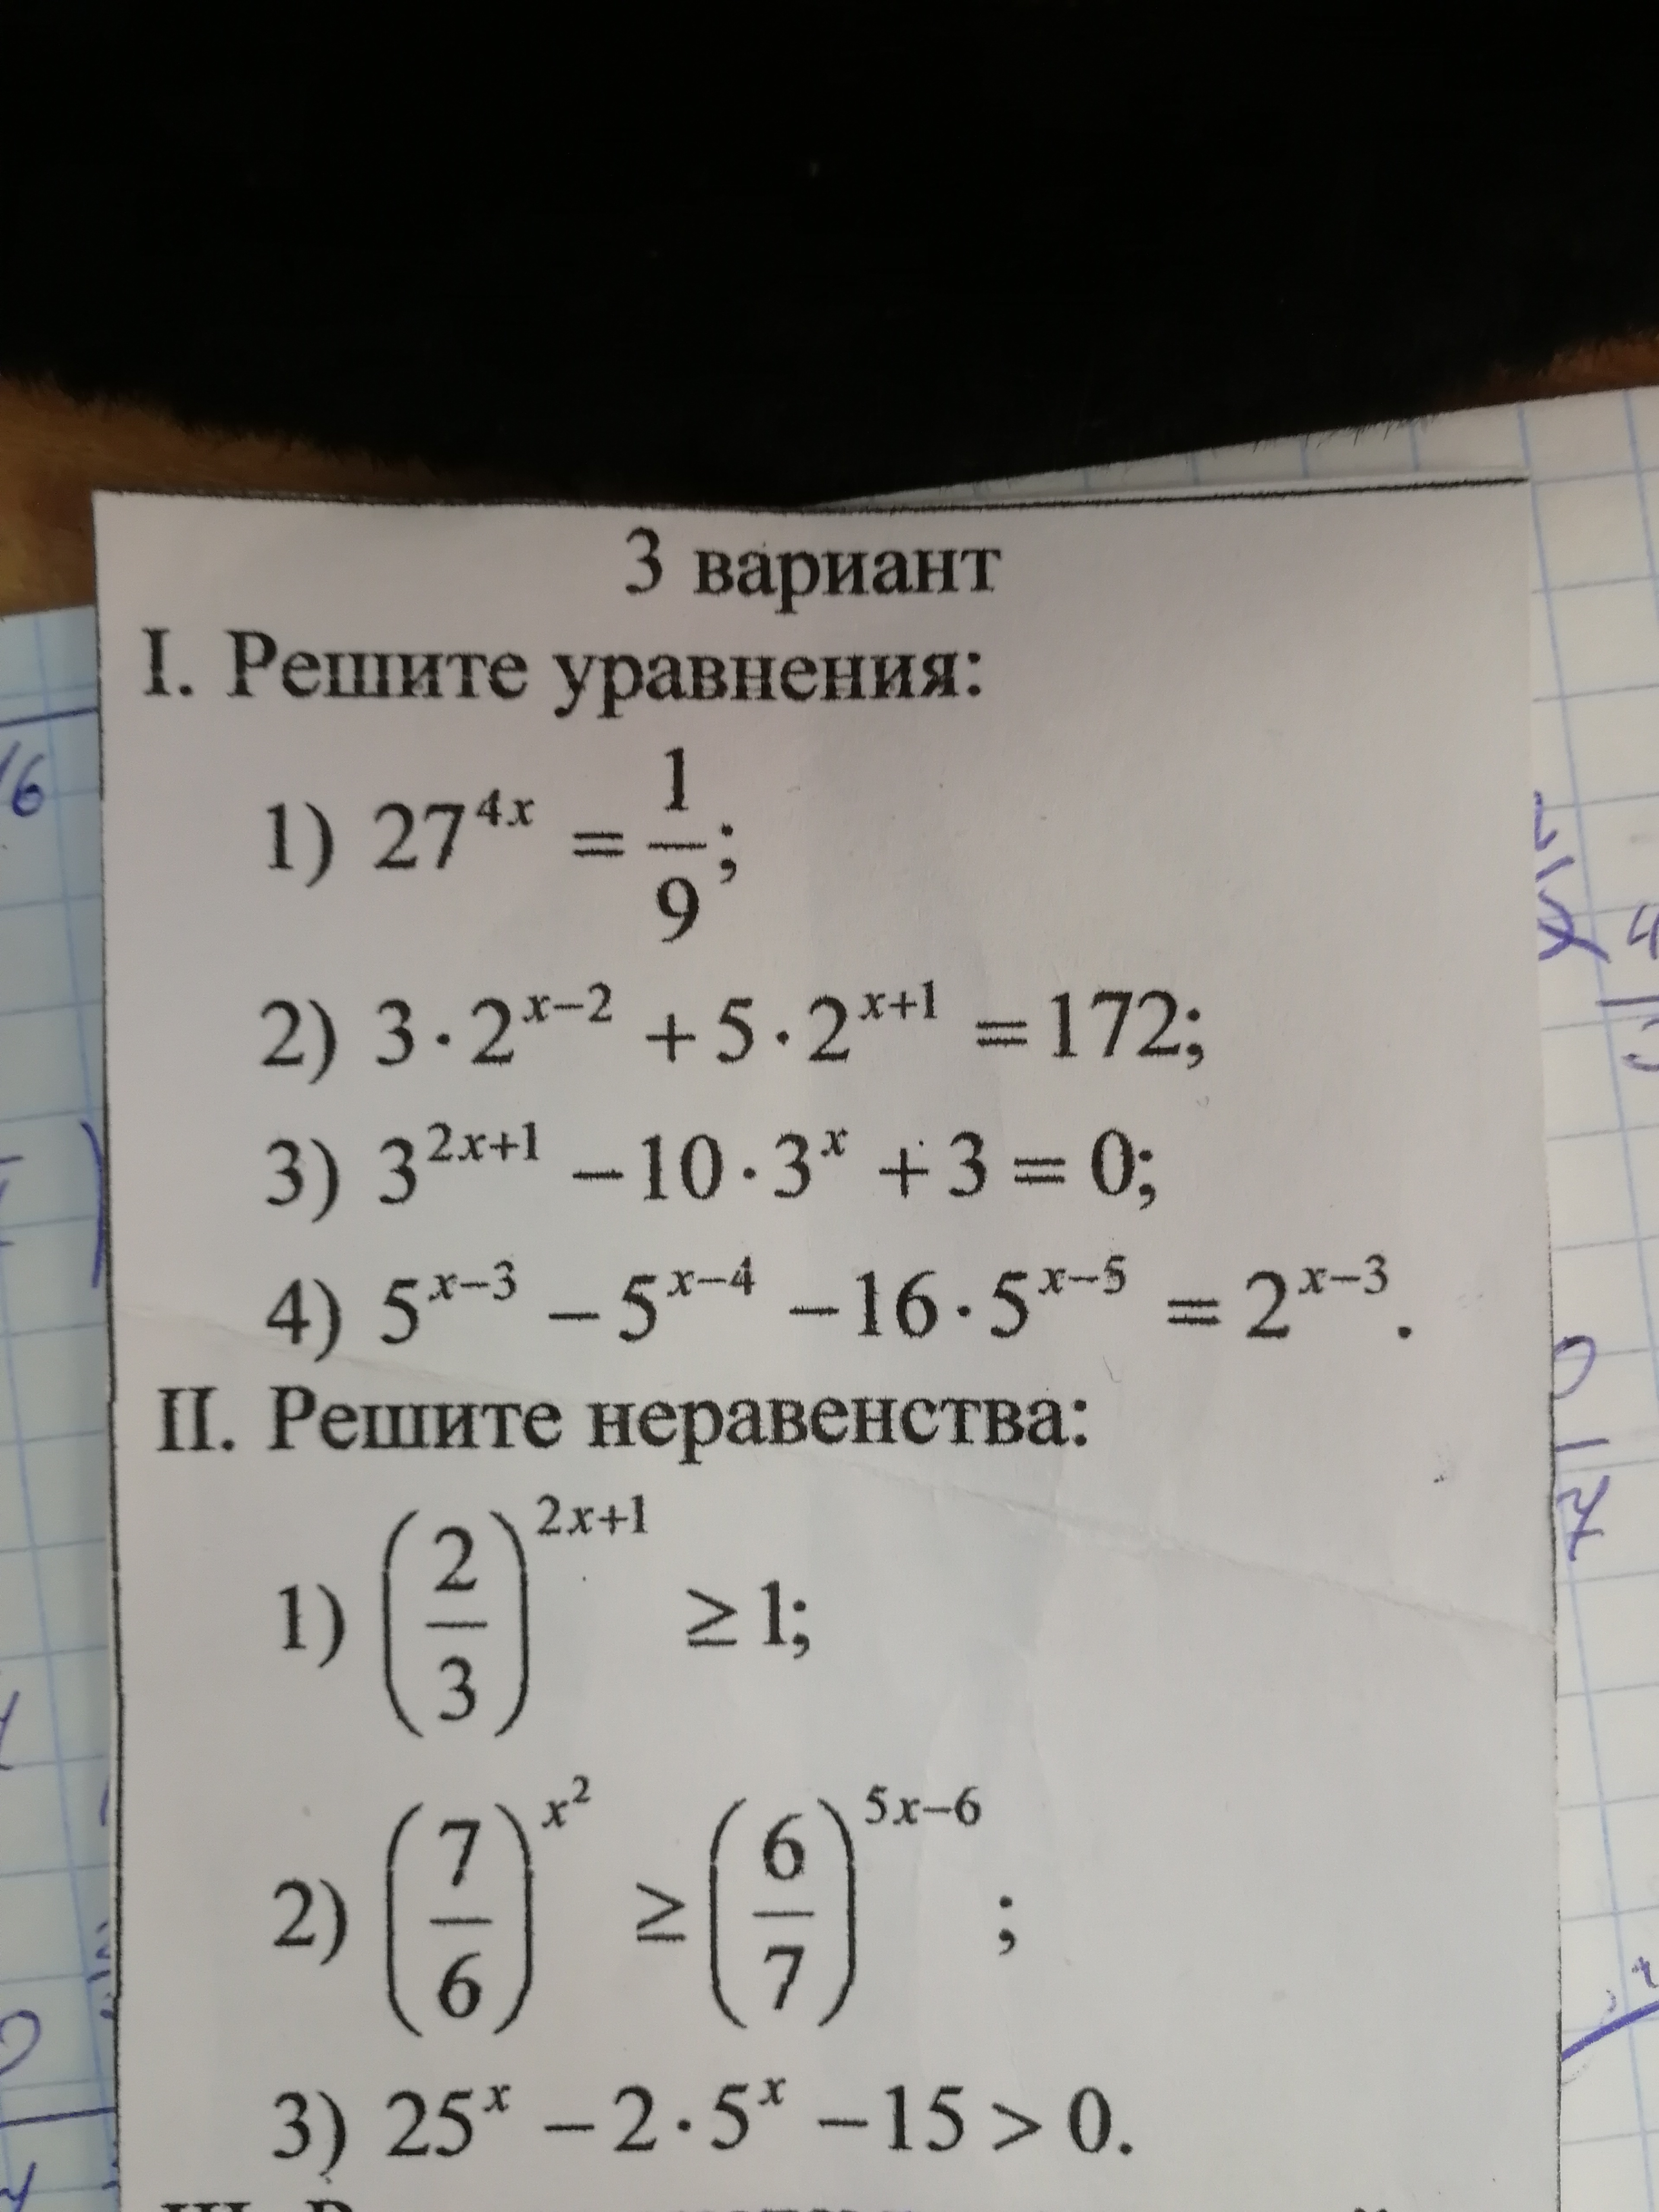 3 вариант
I. Решите уравнения:
1) 27^{4x} = \frac{1}{9};
2) 3·2^{x−2} + 5·2^{x+1} = 172;
3) 3^{2x+1} − 10·3^{x} + 3 = 0;
4) 5^{x−3} − 5^{x−4} − 16·5^{x−5} = 2^{x−3}.
II. Решите неравенства:
1) (\frac{2}{3})^{2x+1} ≥ 1;
2) (\frac{7}{6})^{x^2} ≥ (\frac{6}{7})^{5x−6};
3) 25^{x} − 2·5^{x} − 15 > 0.